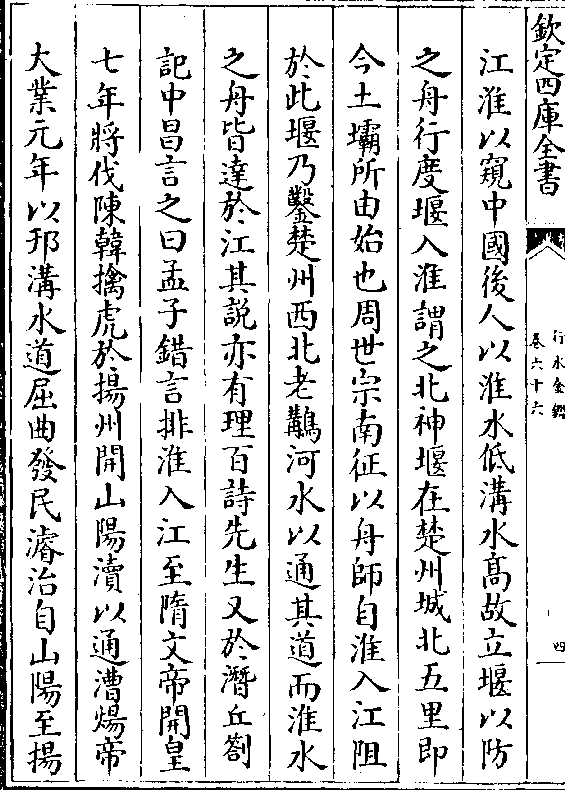 欽定四庫全書
行水金鑑
卷六十六
四
江淮以窺中國後人以淮水低溝水髙故立堰以防
之舟行度堰入淮謂之北神堰在楚州城北五里即
今土壩所由始也周世宗南征以舟師自淮入江阻
於此堰乃鑿楚州西北老鸛河水以通其道而淮水
之舟皆達於江其説亦有理百詩先生又於濳丘劄
記中昌言之曰孟子錯言排淮入江至隋文帝開皇
七年將伐陳韓擒虎於揚州開山陽瀆以通漕煬帝
大業元年以邗溝水道屈曲發民濬治自山陽至揚